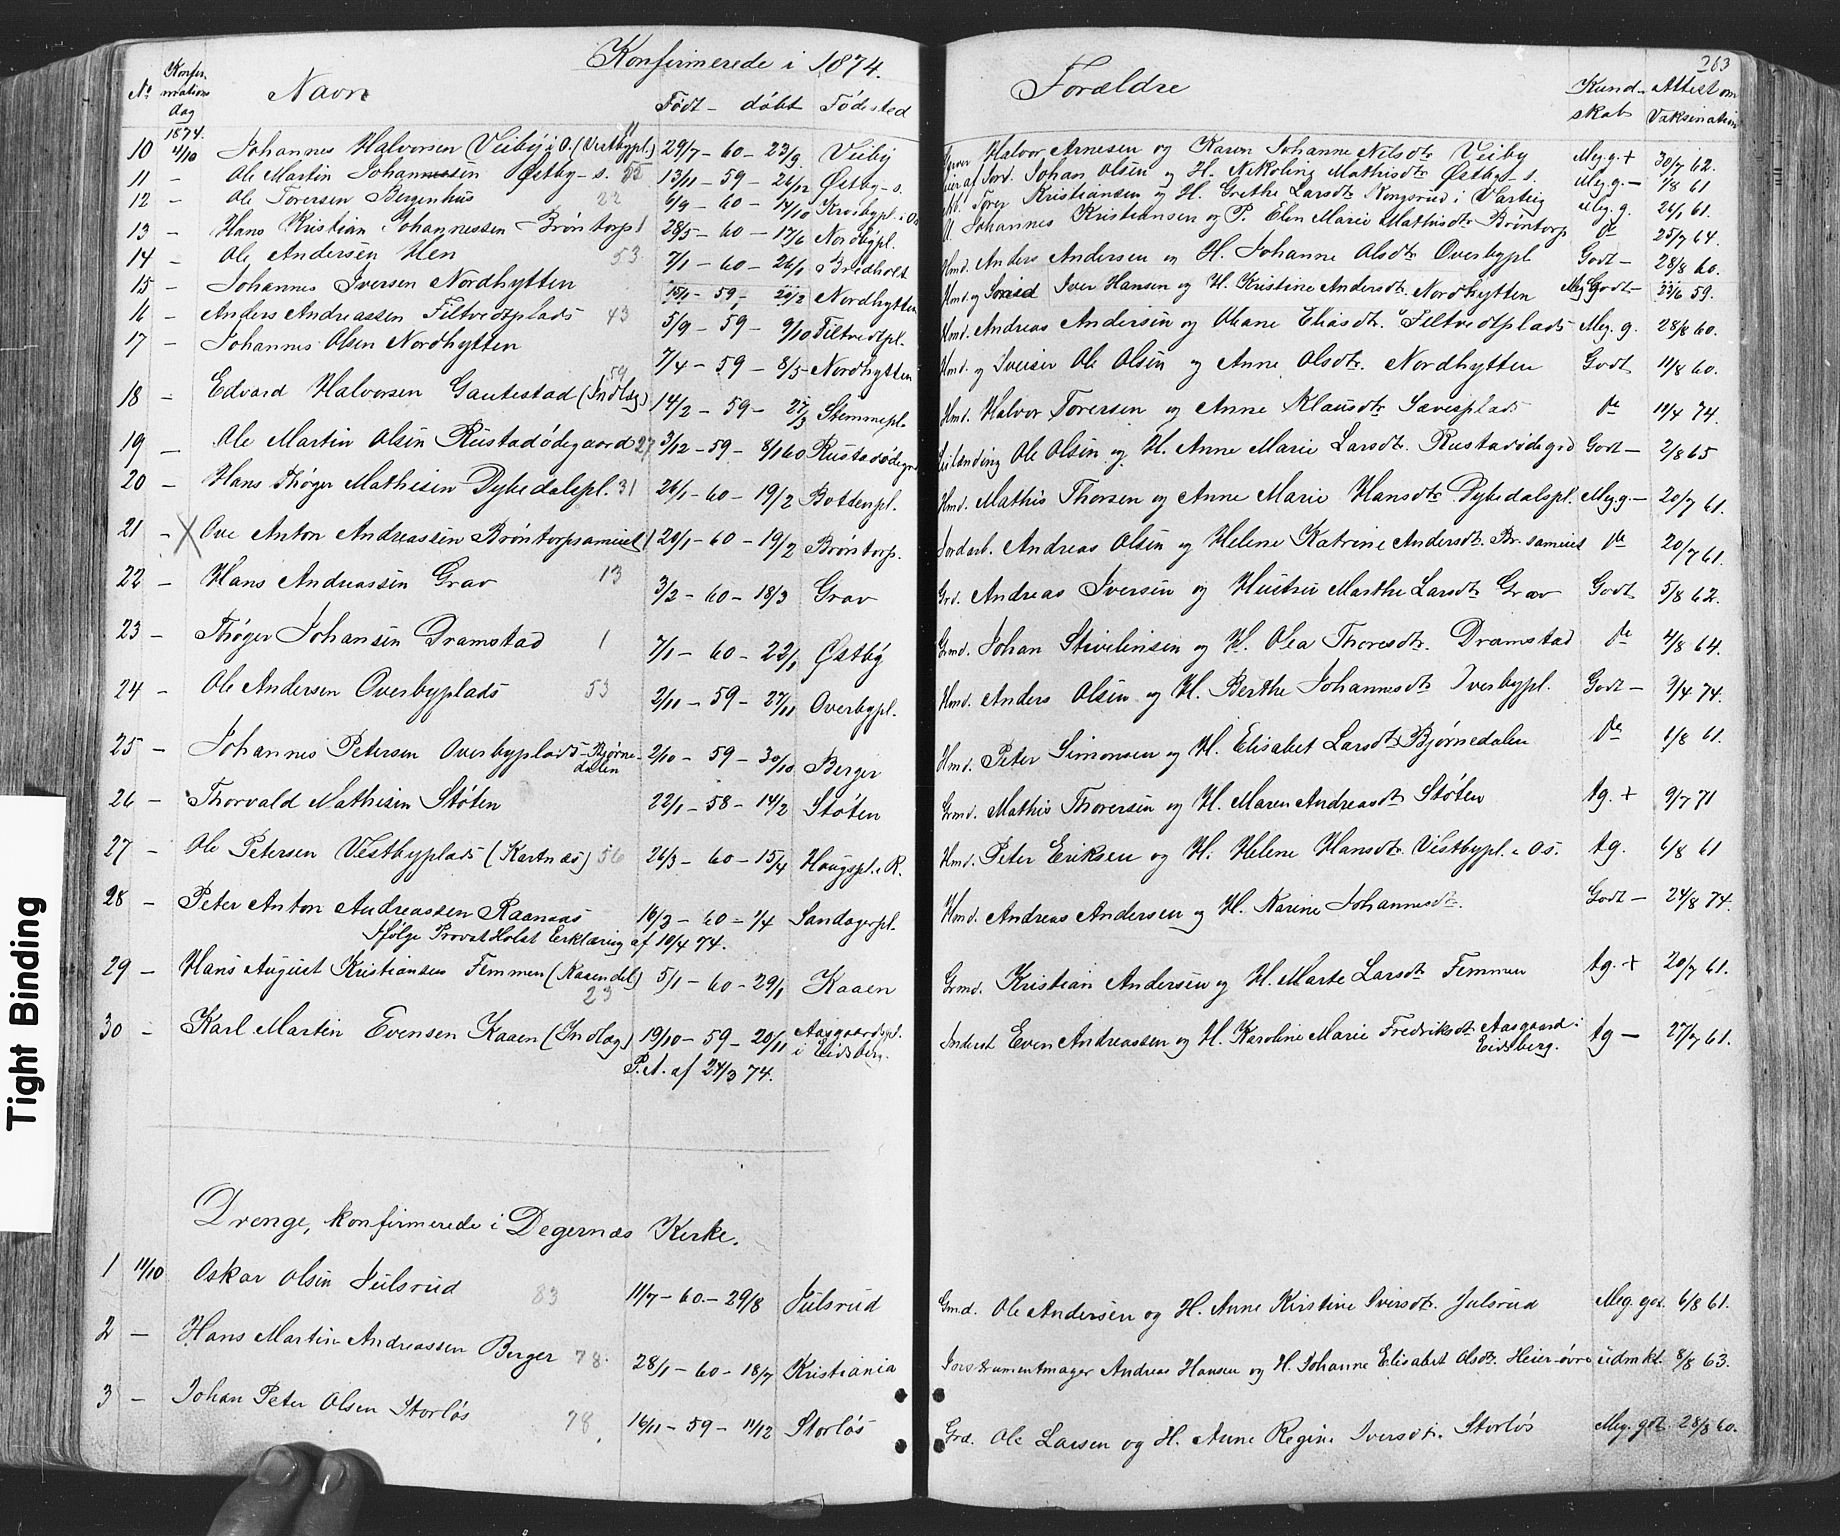 Konfirmerede i 1874.
263
No Konfirmations dag Navn Født – døbt Fødested Forældre Kundskab Attest om Vaksination
1874.
10 4/10 Johannes Halvorsen Veiby i O. (Vestbypl.) 29/7 – 60 – 23/9 Veiby Halvor Arnesen og Karen Johanne Nilsdtr Veiby Meg. g. + 30/7 62.
11 – Ole Martin Johannessen Østby – s. 52 13/11 – 59 – 26/12 Østby – s. Johan Olsen og H. Nikoline Mathisdtr Østby s. Meg. g. – 7/8 61
12 – Ole Torersen Bergenhus 22 6/9 – 60 – 14/10 Krosbypl. i Os Torer Kristiansen og H. Grethe Larsdtr Kongsrud i Varteig Meg. g. 26/1 61.
13 – Hans Kristian Johannessen Brøntorp 1 28/5 – 60 – 17/6 Nordbypl. Johannes Kristiansen og P. Elen Marie Mathisdtr Brøntorp do 25/7 64.
14 – Ole Andersen Hen 53 7/1 – 60 – 26/1 Bredholt Hmd. Anders Andersen og H. Johanne Olsdtr Overbypl Godt – 28/8 60.
15 – Johannes Iversen Nordhytten 15/1 – 59 – 20/2 Nordhytten Hmd. og Smed Iver Hansen og H. Kristine Andersdtr. Nordhytten Godt – 23/6 59.
16 – Anders Andreassen Tiltvedtplads 43 5/9 – 59 – 9/10 Tiltvedtpl. Hmd. Andreas Andersen og Oliane Eliasdtr. Tiltvedtplads Meg. g. 28/8 60.
17 – Johannes Olsen Nordhytten 7/4 – 59 – 8/5 Nordhytten Hmd. og Sveiser Ole Olsen og Anne Olsdtr. Nordhytten Godt 11/8 60.
18 – Edvard Halvorsen Gautestad (Indlæg) 59 14/2 – 59 – 27/3 Stemmepl. Hmd. Halvor Torersen og Anne Klausdtr Sæveplads do 11/4 74.
19 – Ole Martin Olsen Rustadødegaard 27 3/12 – 59 – 8/1 60 Rustadødegrd Leilænding Ole Olsen og H. Anne Marie Larsdtr. Rustadødegrd Godt – 2/8 65
20 – Hans Thøger Mathisen Dybedalspl. 31 26/1 – 60 – 19/2 Bottenpl. Hmd. Mathis Thorsen og Anne Marie Hansdtr Dybedalspl. Meg. g – 20/7 61.
21 – X Ove Anton Andreassen Brøntorpsameiet 1 20/1 – 60 – 19/2 Brøntorp. Jordarb. Andreas Olsen og Helene Katrine Andersdtr. Br. sameiet do 20/7 61.
22 – Hans Andreassen Grav 13 3/2 – 60 – 18/3 Grav Grd. Andreas Iversen og Hustru Marthe Larsdtr Grav Godt 5/8 62.
23 – Thøger Johansen Dramstad 1 7/1 – 60 – 22/1 Østby Grmd. Johan Stivelinsen og H. Olea Thoresdtr. Dramstad do 4/8 64.
24 – Ole Andersen Overbyplads 53 2/11 – 59 – 27/11 Overbypl. Hmd. Anders Olsen og H. Berthe Johannesdtr Overbypl. Godt – 9/4 74.
25 – Johannes Petersen Overbyplads – Bjørnedalen 2/10 – 59 – 30/10 Berger Hmd. Peter Simonsen og H. Elisabet Larsdtr Bjørnedalen do 1/8 61.
26 – Thorvald Mathisen Støten 22/1 – 58 – 14/2 Støten Grmd. Mathis Thorersen og H. Maren Andreasdtr Støten tg. + 9/7 71
27 – Ole Petersen Vestbyplads (Kartnæs) 56 26/3 – 60 – 15/4 Haugspl. i R. Hmd. Peter Eriksen og H. Helene Hansdtr. Vestbypl. i Os. tg. 6/8 61
28 – Peter Anton Andreassen Raanaas 16/3 – 60 – 7/4 Sandagerpl. Hmd. Andreas Andersen og H. Karine Johannesdtr. Godt – 24/8 74.
Ifølge Provst Holst Erklæring af 10/4 74.
29 – Hans August Kristiansen Femmen (Kaaendel) 23 5/1 – 60 – 29/1 Kaaen Grmd. Kristian Andersen og H. Marte Larsdtr Femmen tg. + 20/7 61.
30 – Karl Martin Evensen Kaaen (Indlæg) 19/10 – 59 – 20/11 Aasgaardpl. i Eidsberg. Inderst Even Andreassen og H. Karoline Marie Fredriksdtr Aasgaard i Eidsberg. tg – 27/7 61.
P.A. af 24/3 74.
Drenge, konfirmerede i Degernæs Kirke.
1 11/10 Oskar Olsen Julsrud 83 11/7 – 60 – 29/8 Julsrud Gmd. Ole Andersen og H. Anne Kirstine Iversdtr. Julsrud Meg. got 6/8 61.
2 – Hans Martin Andreassen Berger 78. 28/1 – 60 – 18/7 Kristiania Instrumentmager Andreas Hansen og H. Johanne Elisabet Olsdtr. Heier øvre udmkt. 8/8 63.
3 – Johan Peter Olsen Storløs 78. 16/11 – 59 – 11/12 Storløs Grd. Ole Larsen og H. Anne Regine Iversdtr. Storløs Meg. got 28/8 60.
Tight Binding